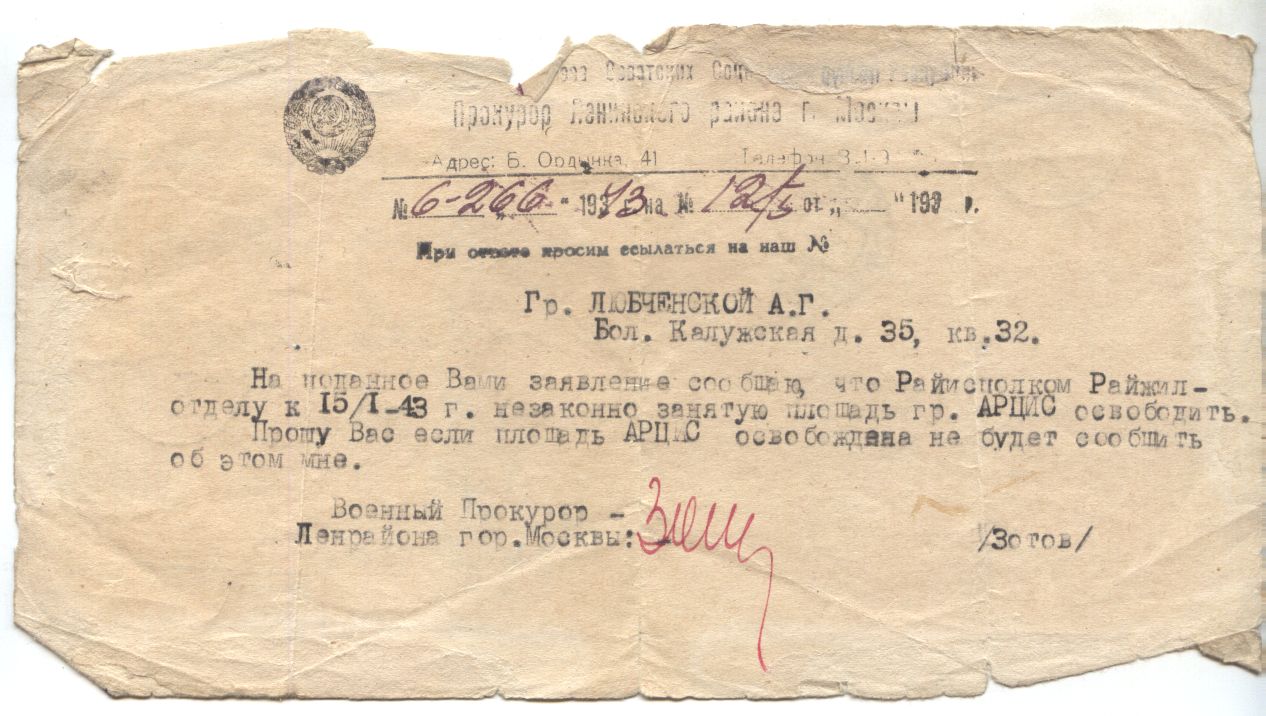 Советских
Прокурор Ленинского района г. Москвы
Адрес: Б. Ордынка, 41 Телефон
№ 6-266 " 1943 г. на № 12/ от „ " 193 г.
При ответе просим ссылаться на наш №
Гр. ЛЮБЧЕНСКОЙ А.Г.
Бол. Калужская д. 35, кв.32.
На поданное Вами заявление сообщаю, что Райисполком Райжил-
отделу к 15/I-43 г. незаконно занятую площадь гр. АРЦИС освободить.
Прошу Вас если площадь АРЦИС освобождена не будет сообщить
об этом мне.
Военный Прокурор -
Ленрайона гор.Москвы: /Зотов/